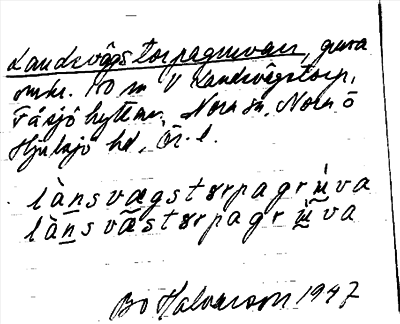 Landsvägstorpagruvan, gruva
omkr. 40 m V Landsvägstorp,
Nora sn, Nora o
Hjulsjö hd, Ör. l.
lànsvægstørpagrùva
lànsvãstørpagrùva
Bo Halvarson 1947